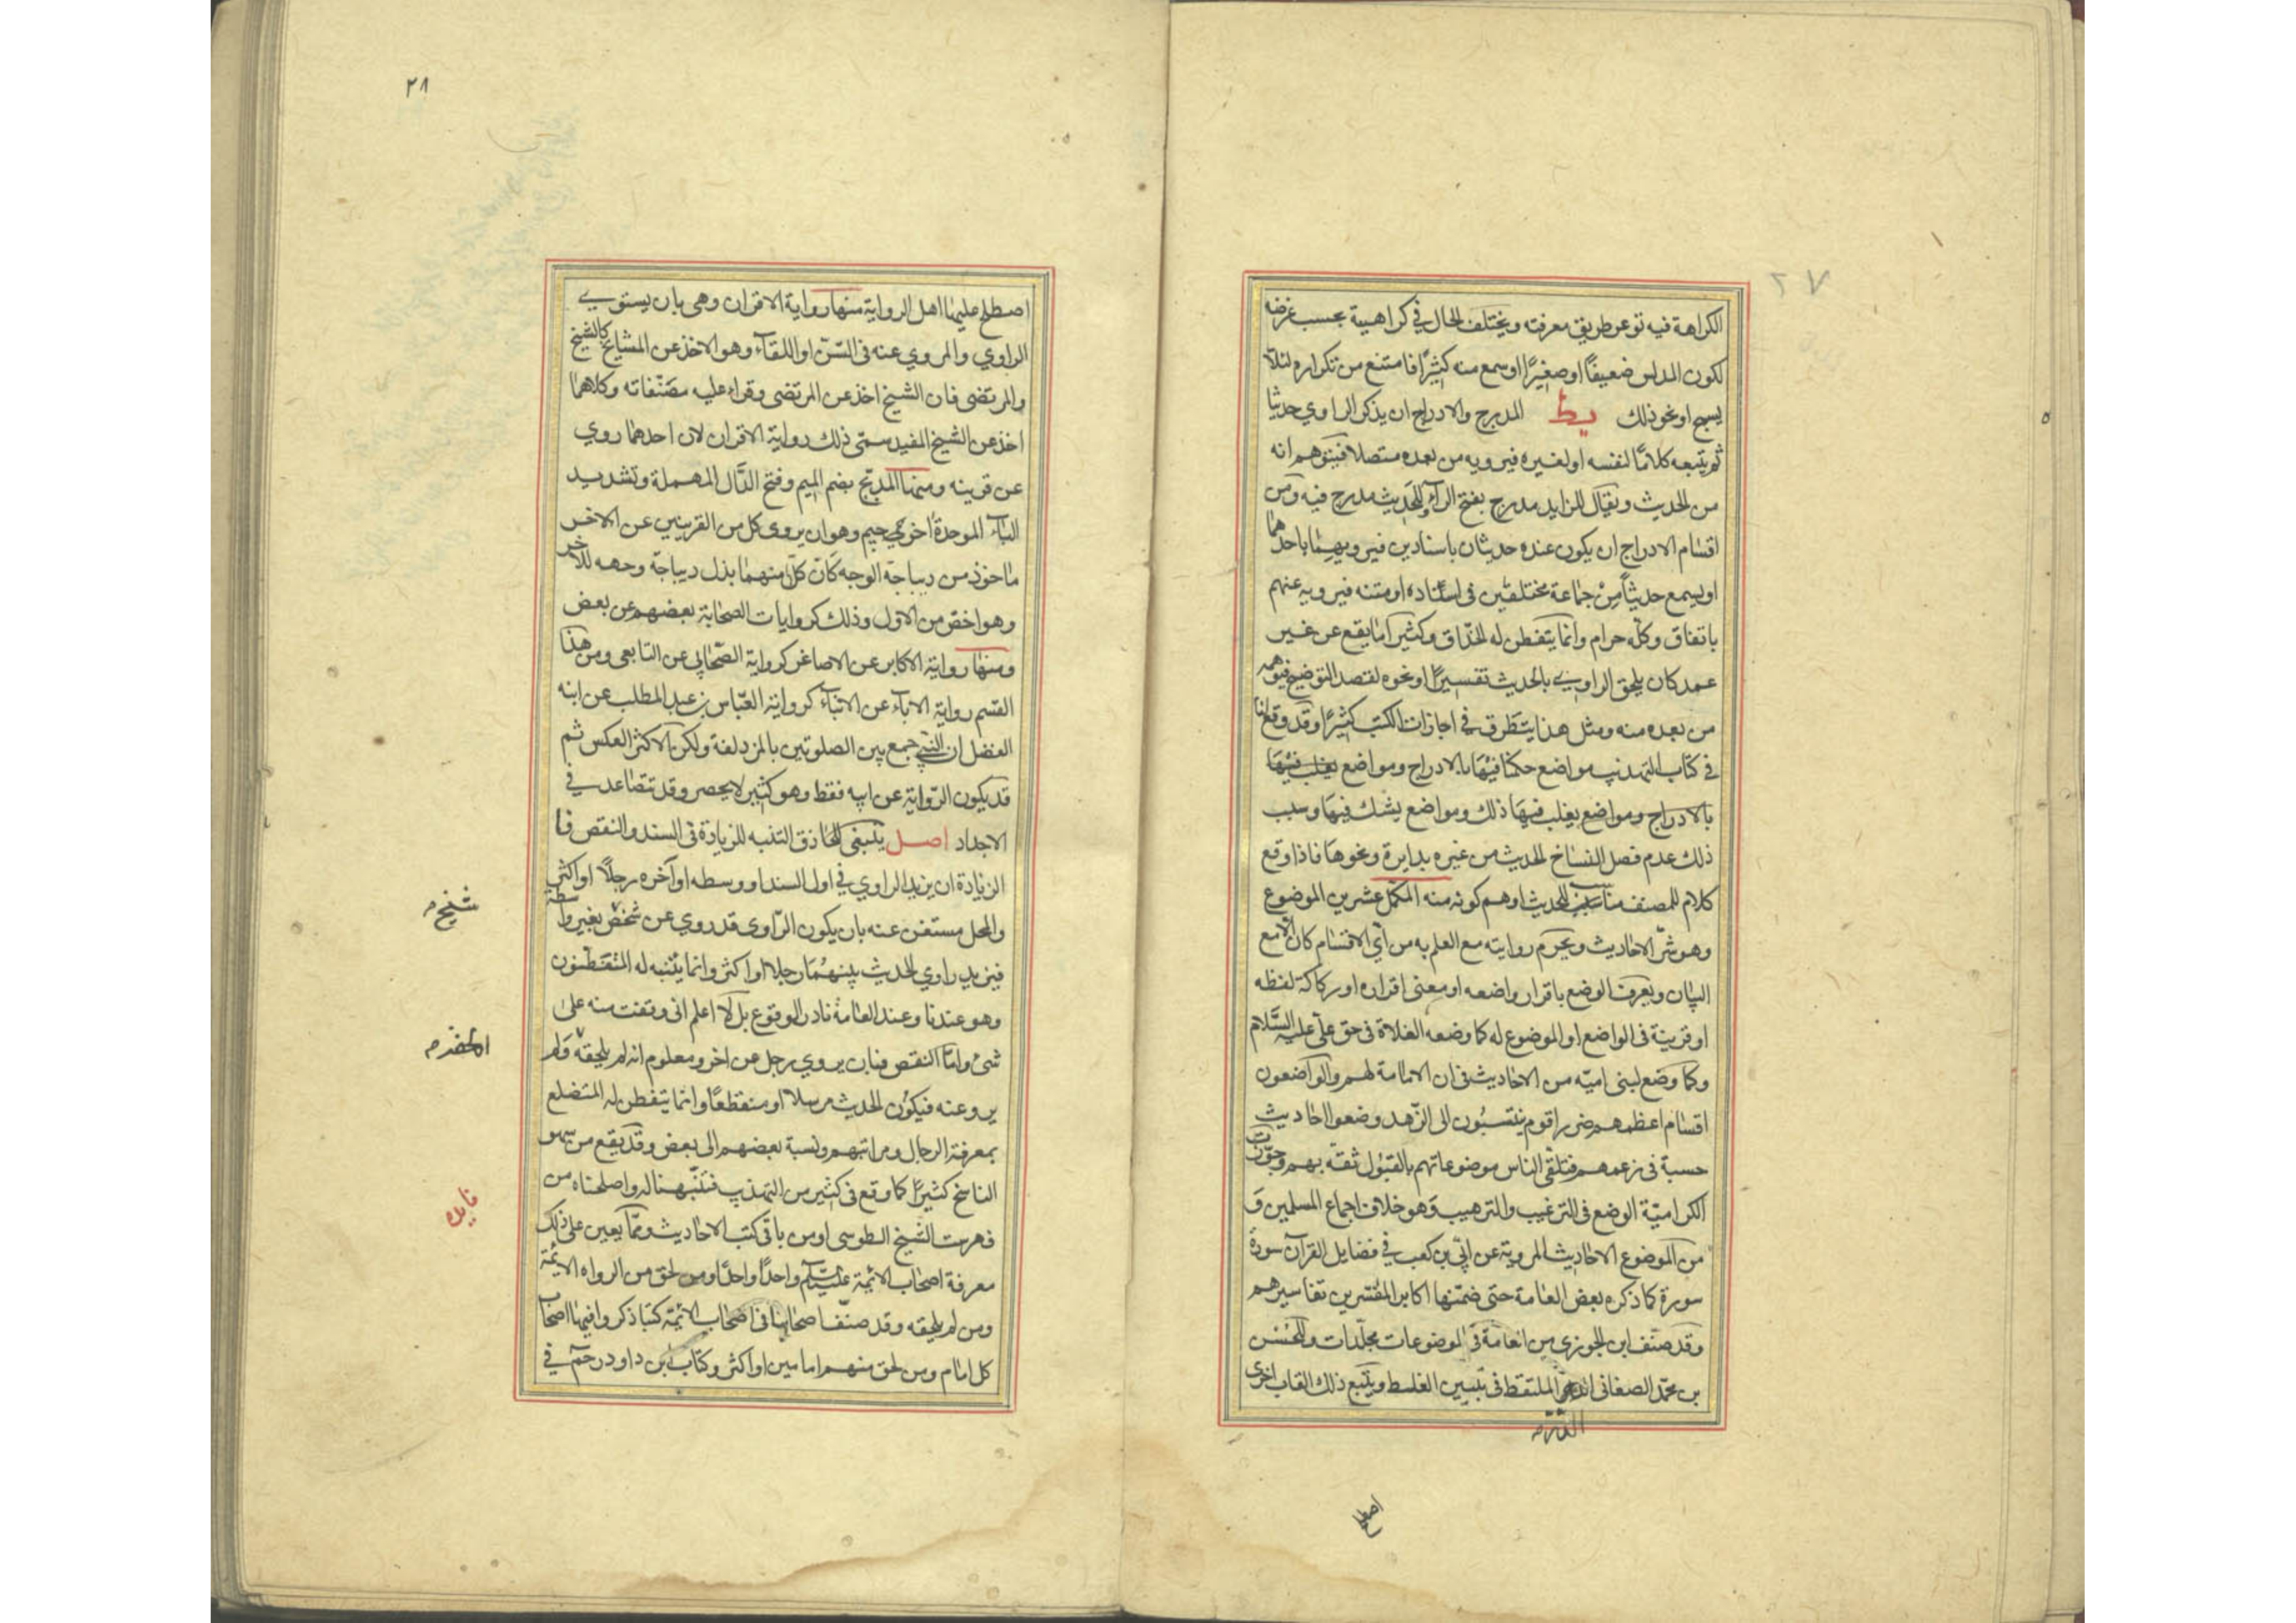 ٢٧
الكراهة فيه توعر طريق معرفته ويختلف الحال في كراهية بحسب غرضه
لكون المدلس ضعيفًا او صغيرًا او سمع منه كثيرًا فامتنع من تكراره لئلا
يسمج او نحو ذلك يط المدرج والادراج ان يذكر الراوي حديثا
ثم يتبعه كلامًا لنفسه او لغيره فيرويه من بعده متصلا فيتوهم انه
من الحديث ويقال للزايد مدرج بفتح الراء والحديث مدرج فيه ومن
اقسام الادراج ان يكون عنده حديثان باسنادين فيرويهما باحدهما
او يسمع حديثًا من جماعة مختلفين في اسناده او متنه فيرويه عنهم
باتفاق وكله حرام وانما يتفطن له الحذاق وكثيرا ما يقع عن غير
عمد كان يلحق الراوي بالحديث تفسيرًا او نحوه لقصد التوضيح فيتوهمه
من بعده منه ومثل هذا يتطرق في اجازات الكتب كثيرًا وقد وقع لنا
في كتاب التهذيب مواضع حكمنا فيها بالادراج ومواضع يغلب فيها
بالادراج ومواضع يغلب فيها ذلك ومواضع يشك فيها وسبب
ذلك عدم فصل النساخ الحديث من غيره بدايرة ونحوها فاذا وقع
كلام للمصنف مناسب للحديث اوهم كونه منه المكمل عشرين الموضوع
وهو شر الاحاديث ويحرم روايته مع العلم به من اي الاقسام كان الا مع
البيان ويعرف الوضع باقرار واضعه او معنى اقراره او ركاكة لفظه
او قرينة في الواضع او الموضوع له كما وضعه الغلاة في حق علي عليه السلام
وكما وضع لبني امية من الاحاديث في ان الامامة لهم والواضعون
اقسام اعظمهم ضررا قوم ينتسبون الى الزهد وضعوا احاديث
حسبة في زعمهم فتلقى الناس موضوعاتهم بالقبول ثقة بهم وجوزت
الكرامية الوضع في الترغيب والترهيب وهو خلاف اجماع المسلمين و
من الموضوع الاحاديث المروية عن ابي بن كعب في فضايل القرآن سورة
سورة كما ذكره بعض العامة حتى ضمنها اكابر المفسرين تفاسيرهم
وقد صنف ابن الجوزي من العامة في الموضوعات مجلدات وللحسن
بن محمد الصغاني الملتقط في تبيين الغلط ويتبع ذلك القاب اخرى
اصطلح
٢٨
اصطلح عليها اهل الرواية منها رواية الاقران وهي بان يستوي
الراوي والمروي عنه في السن او اللقاء وهو الاخذ عن المشايخ كالشيخ
والمرتضى فان الشيخ اخذ عن المرتضى وقراء عليه مصنفاته وكلاهما
اخذ عن الشيخ المفيد سمي ذلك رواية الاقران لان احدهما روي
عن قرينه ومنها المدبج بضم الميم وفتح الدال المهملة وتشديد
الباء الموحدة اخره جيم وهو ان يروي كل من القرينين عن الاخر
ماخوذ من ديباجة الوجه كان كلا منهما بذل ديباجة وجهه للاخر
وهو اخص من الاول وذلك كروايات الصحابة بعضهم عن بعض
ومنها رواية الاكابر عن الاصاغر كرواية الصحابي عن التابعي ومن هذا
القسم رواية الاباء عن الابناء كرواية العباس بن عبد المطلب عن ابنه
الفضل ان النبي جمع بين الصلوتين بالمزدلفة ولكن الاكثر العكس ثم
قد يكون الرواية عن ابيه فقط وهو كثير لا يحصر وقد تتصاعد في
الاجداد اصل ينبغي للحاذق التنبه للزيادة في السند والنقص فا
الزيادة ان يزيد الراوي في اول السند او وسطه او آخره رجلا او اكثر
والمحل مستغن عنه بان يكون الراوي قد روي عن شخص بغير واسطة
فيزيد راوي الحديث بينهما رجلا او اكثر وانما يتنبه له المتفطنون
وهو عندنا وعند العامة نادر الوقوع بل لا اعلم اني وقفت منه على
شئ واما النقص فبان يروي رجل عن اخر ومعلوم انه لم يلحقه ولم
يروعنه فيكون الحديث مرسلا او منقطعًا وانما يتفطن له المتضلع
بمعرفة الرجال ومراتبهم ونسبة بعضهم الى بعض وقد يقع من سهو
الناسخ كثيرًا كما وقع في كثير من التهذيب فتنبهنا له واصلحناه من
فهرست الشيخ الطوسي او من باقي كتب الاحاديث ومما يعين على ذلك
معرفة اصحاب الائمة واحدًا واحدًا ومن لحق من الرواه الائمة
ومن لم يلحقه وقد صنف اصحابنا في اصحاب الائمة كتبا ذكروا فيها اصحاب
كل امام ومن لحق منهم امامين او اكثر وكتاب ابن داود رحمه في
شيخ
فايده